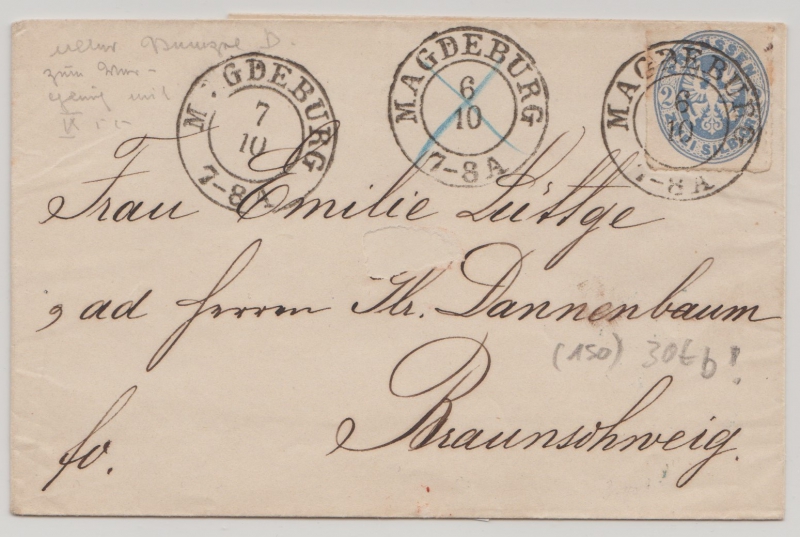 zum
mit
MAGDEBURG
7
10
7-8A
MAGDEBURG
6
10
7-8A
MAGDEBURG
6
10
7-8A
PREUSSEN
2
ZWEI SILB.GR.
Frau Emilie Lüttge
ad Herrn Hr. Dannenbaum
(150) 30
Braunschweig.
fo.